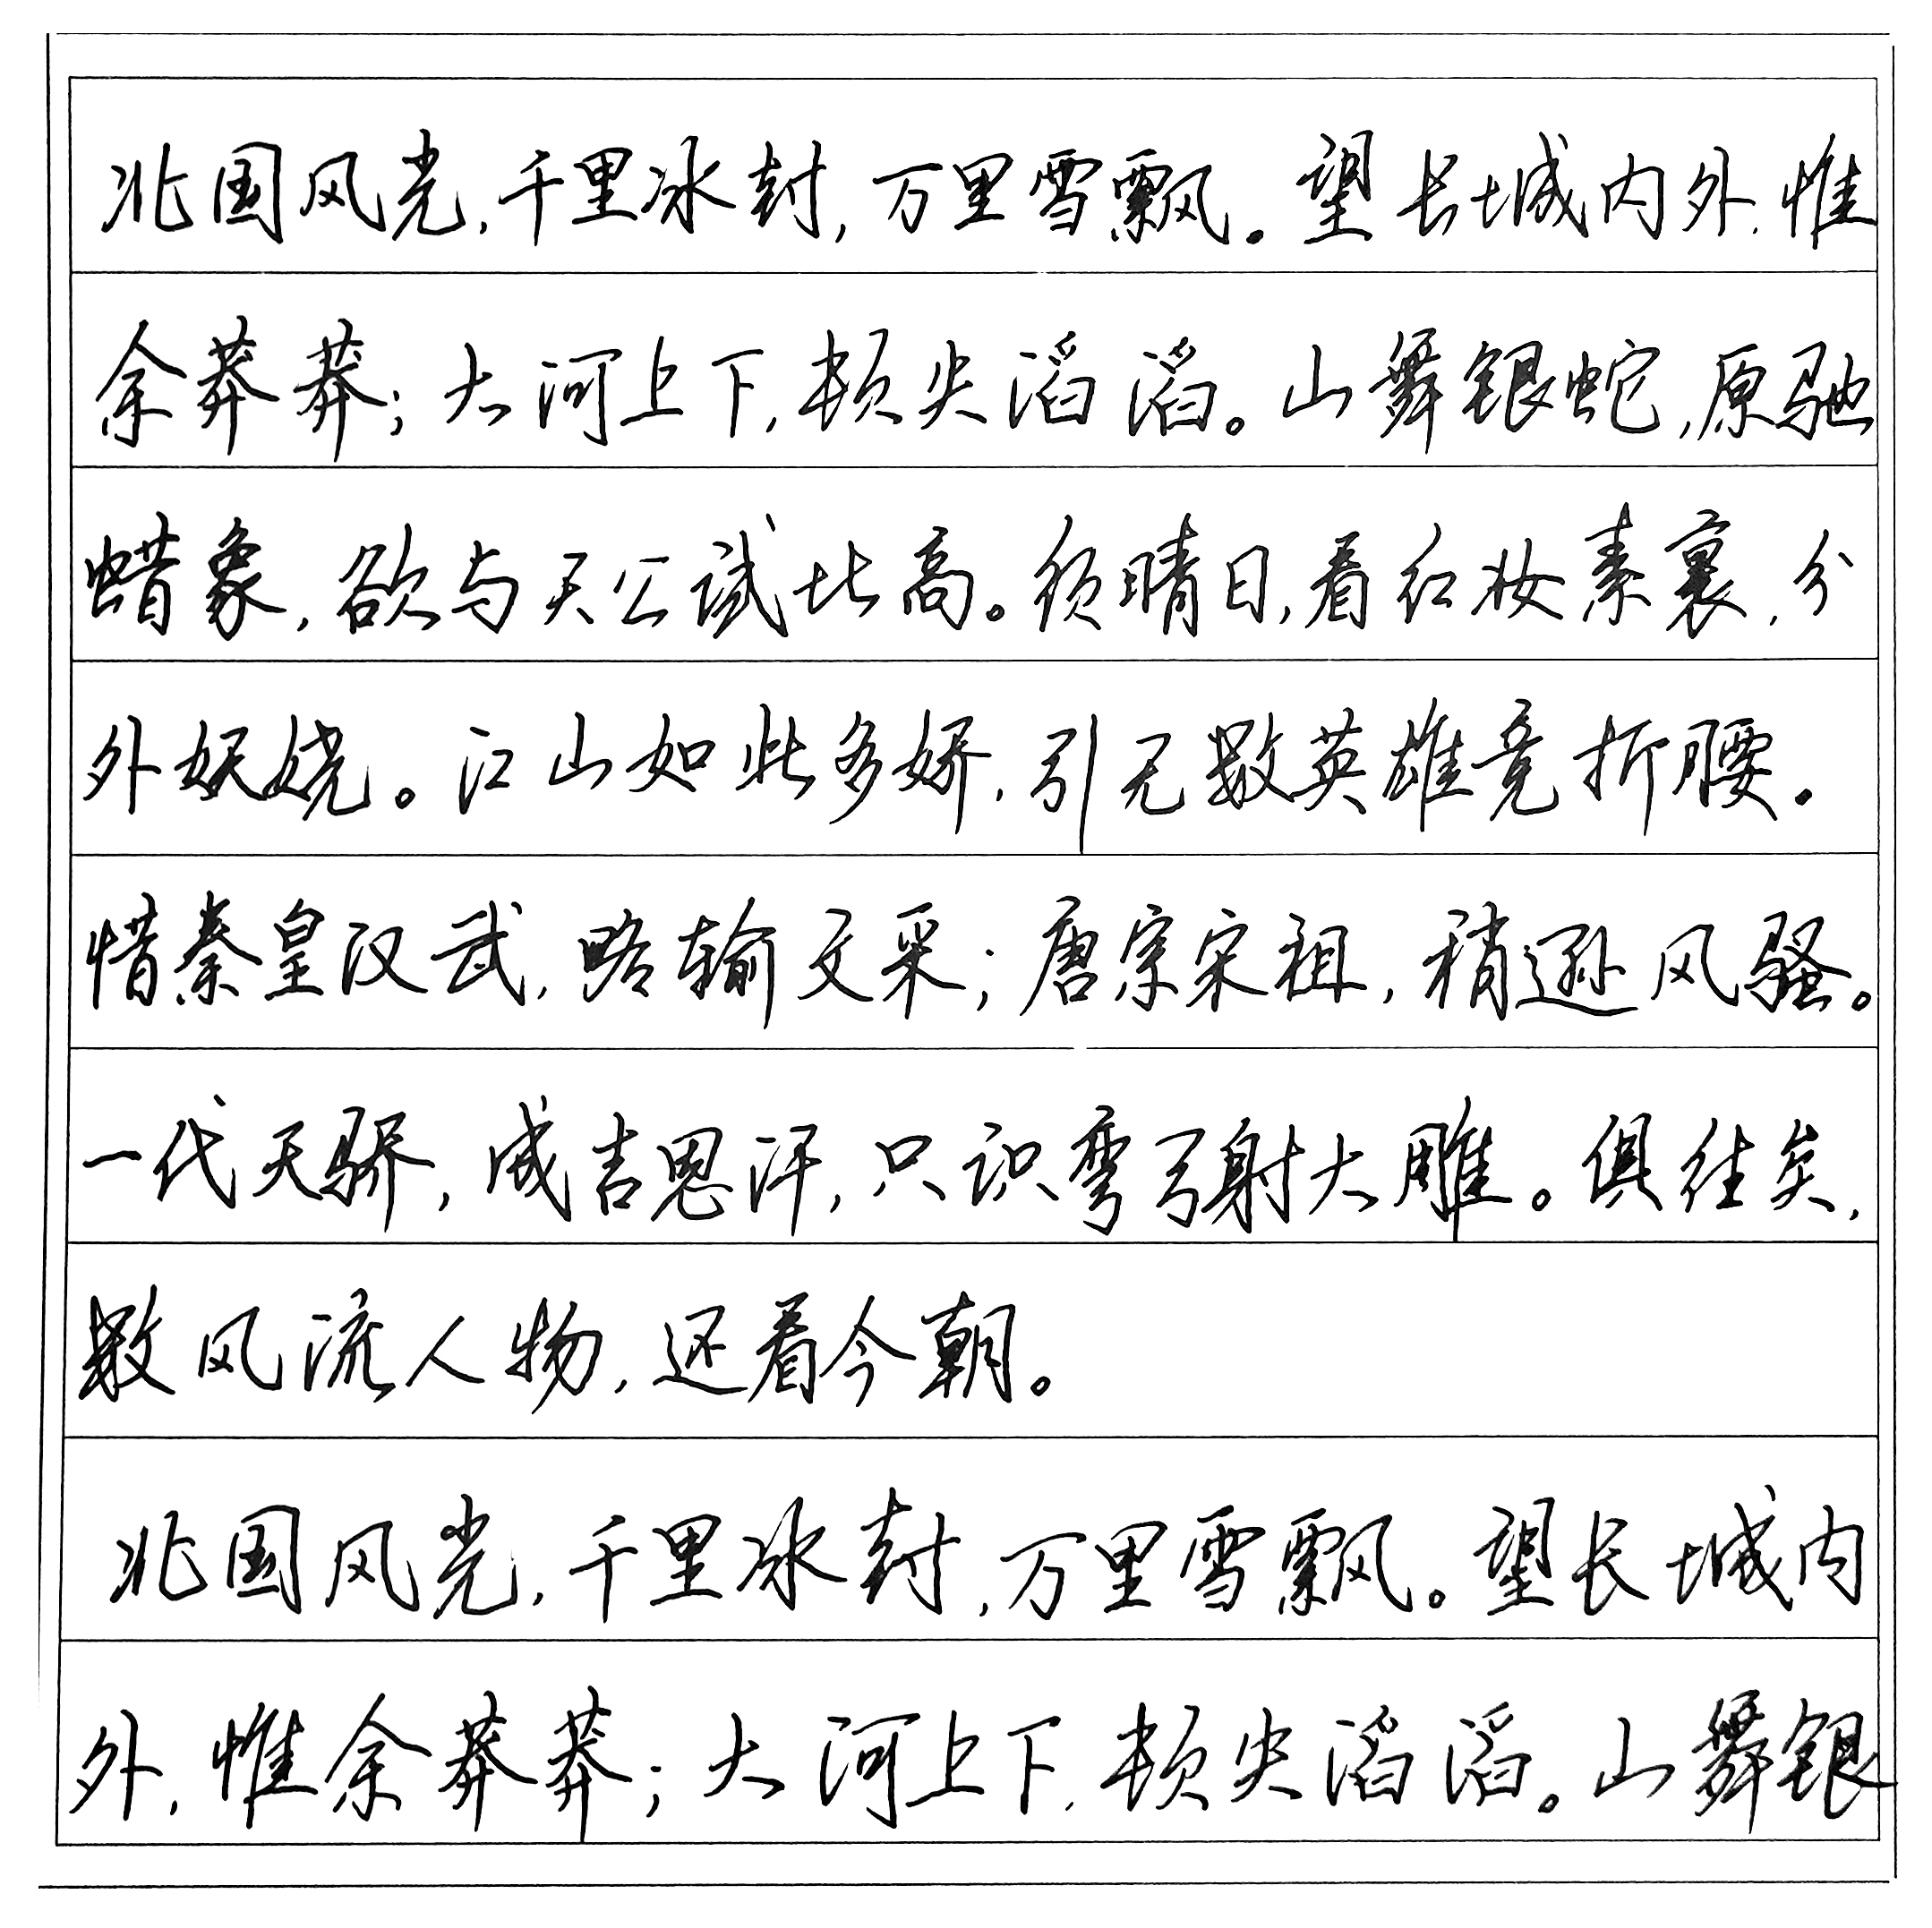 北国风光,千里冰封,万里雪飘.望长城内外,惟
余莽莽;大河上下,顿失滔滔。山舞银蛇,原驰
蜡象,欲与天公试比高。须晴日,看红妆素裹,分
外妖娆。江山如此多娇,引无数英雄竞折腰.
惜秦皇汉武,略输文采;唐宗宋祖,稍逊风骚。
一代天骄,成吉思汗,只识弯弓射大雕。俱往矣,
数风流人物,还看今朝。
北国风光,千里冰封,万里雪飘。望长城内
外,惟余莽莽;大河上下,顿失滔滔。山舞银